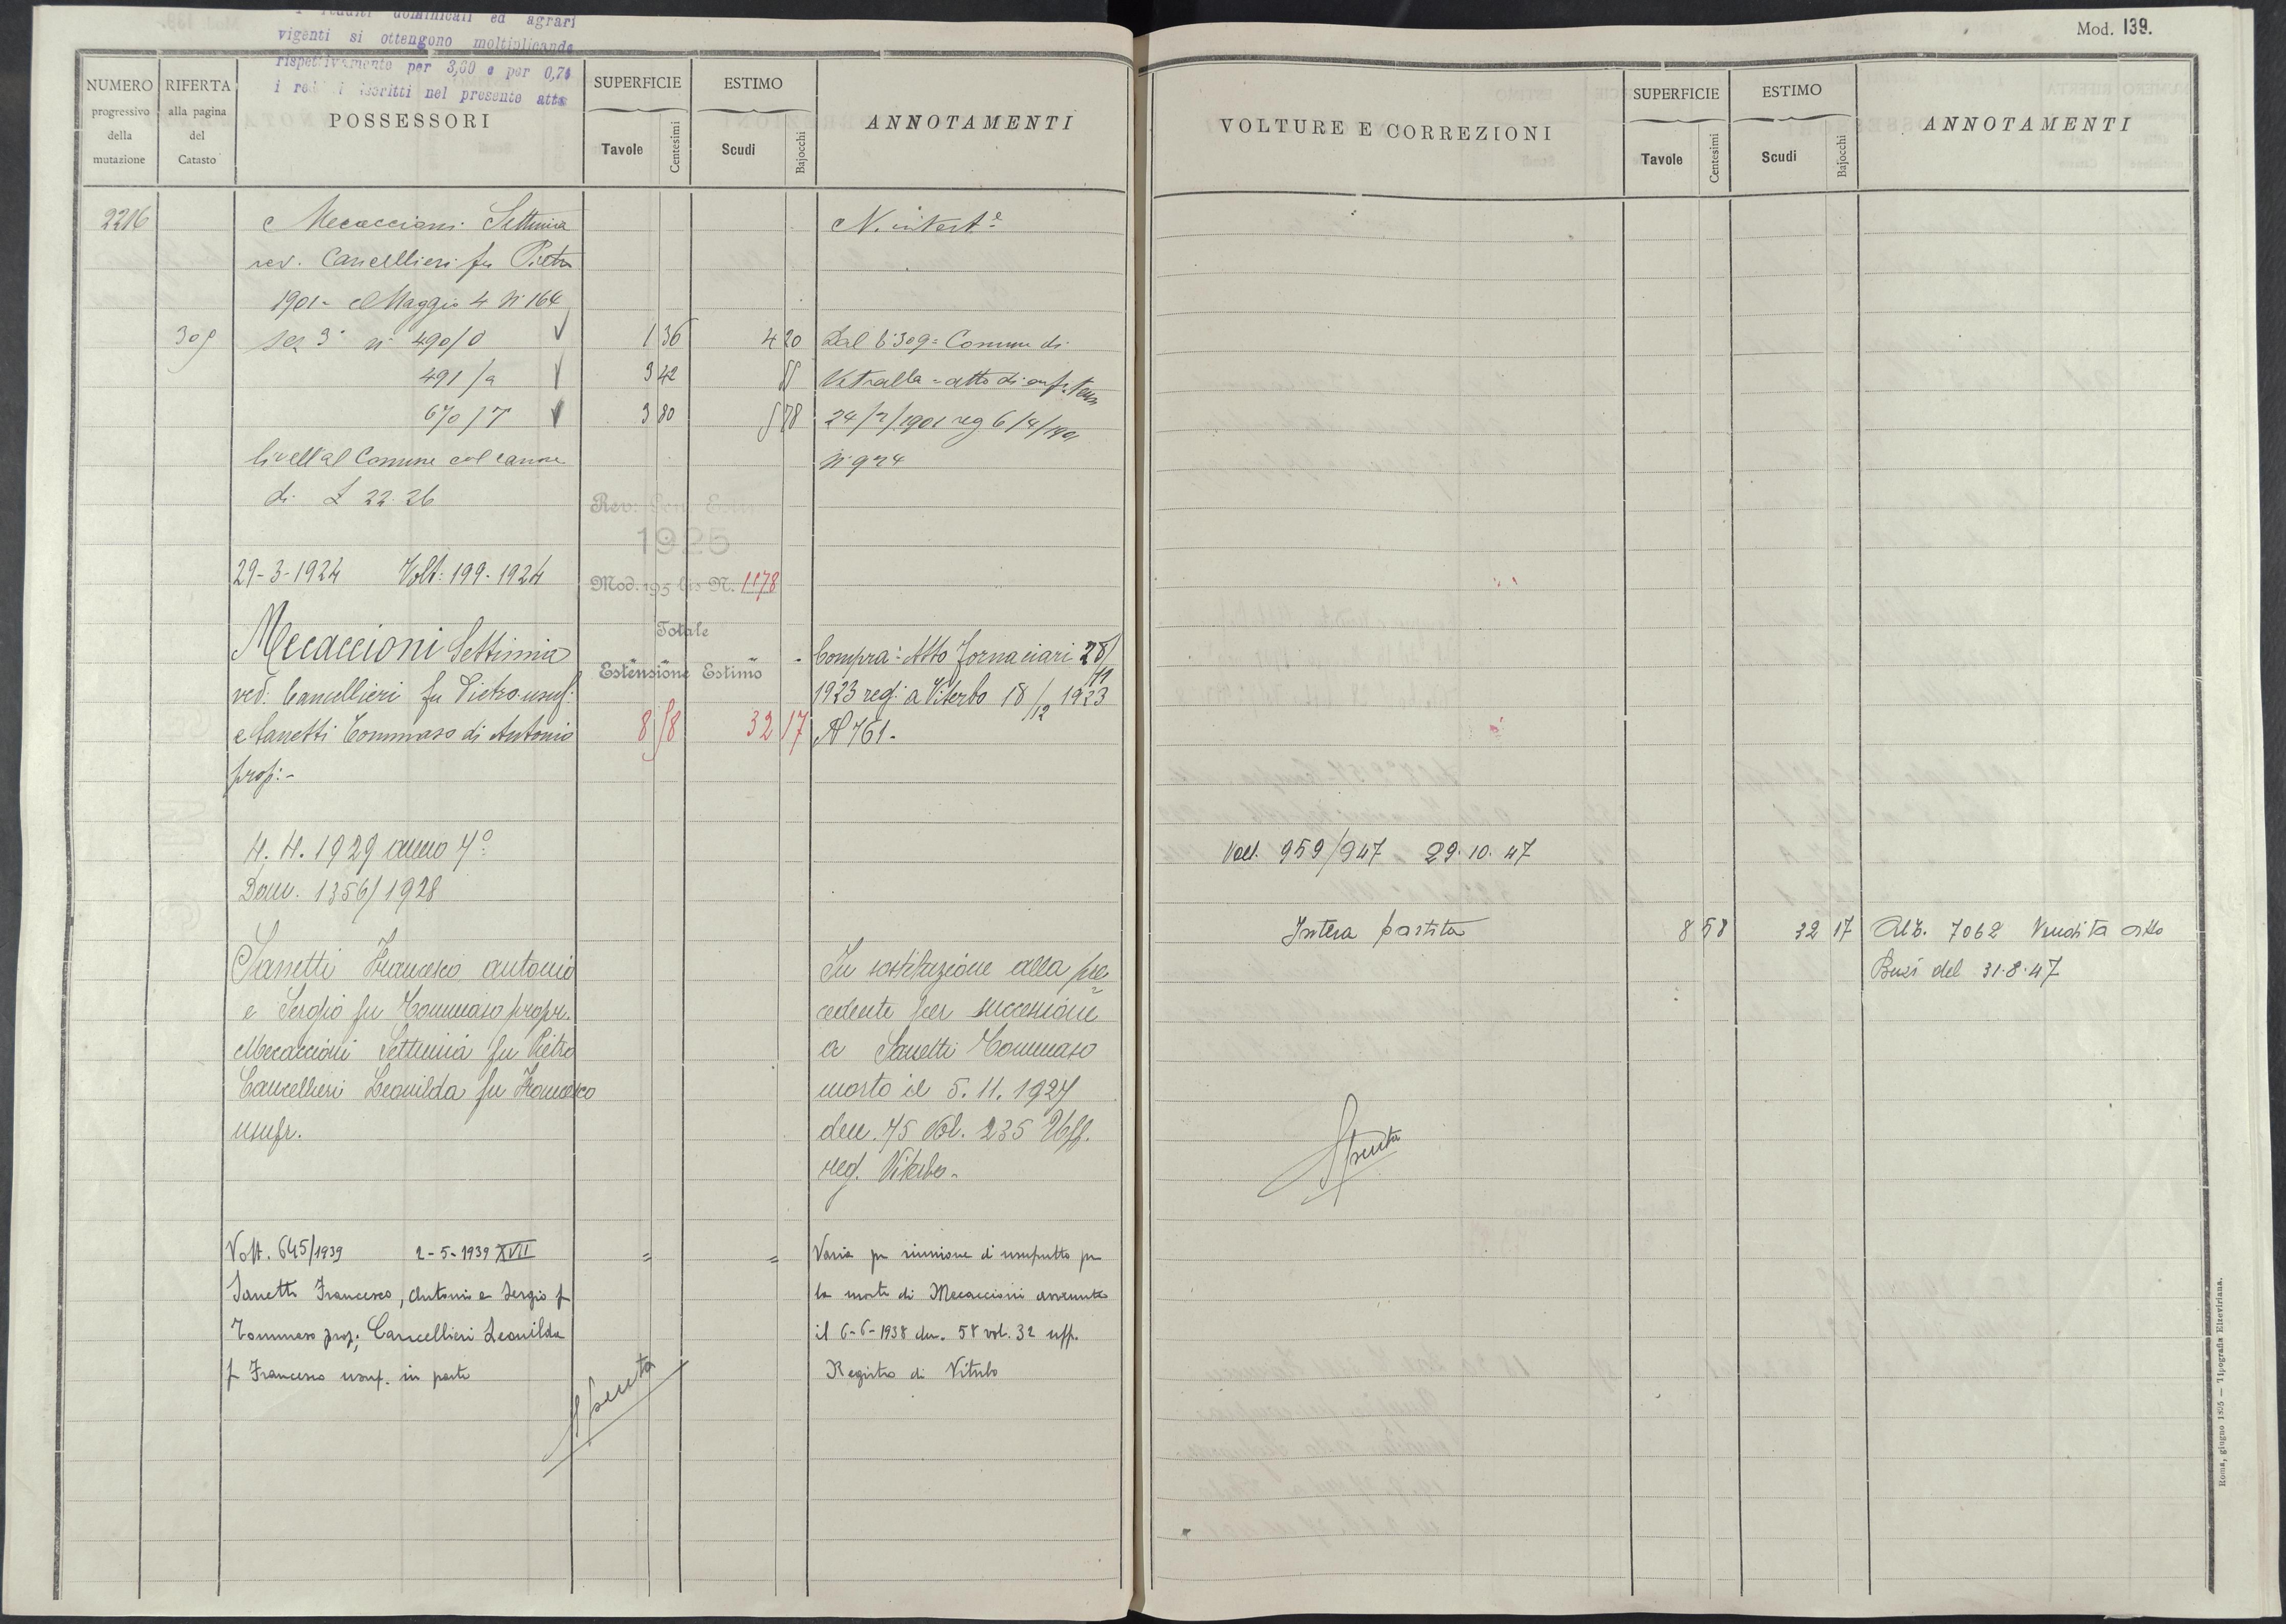 I redditi dominicali ed agrari
vigenti si ottengono moltiplicando
rispettivamente per 3,60 e per 0,74
i redditi iscritti nel presente atto
NUMERO progressivo della mutazione
RIFERTA alla pagina del Catasto
POSSESSORI
SUPERFICIE Tavole Centesimi
ESTIMO Scudi Bajocchi
ANNOTAMENTI
2216 Mecaccioni Settimia N. intest.e
ved. Cancellieri fu Pietro
1901 = Maggio 4 N. 164
309 sez 3ª n. 490/0 1 36 4 20 Dal N. 309 = Comune di
491/a 3 42 Vetralla = atto di enfiteusi
670/7 3 80 78 24/2/1901 reg 6/4/1901
livell. al Comune col canone N. 924
di L 22.26
Rev. Gen. Estimi
1925
29-3-1924 Volt: 199-1924
Mod. 195 bis N. 1178
Totale
Estensione Estimo
Mecaccioni Settimia Compra: Atto Fornaciari 28/11
ved. Cancellieri fu Pietro usuf. 1923 reg: a Viterbo 18/12 1923
e Sanetti Tommaso di Antonio 8 58 32 17 N 761.
prop:-
4.4.1929 anno 7º
Dom. 1356/1928
Sanetti Francesco Antonio In sostituzione alla pre
e Sergio fu Tommaso propr. cedente per successione
Mecaccioni Settimia fu Pietro a Sanetti Tommaso
Cancellieri Leonilda fu Francesco morto il 5.11.1927
usufr. den. 75 Vol. 235 Uff.
reg. Viterbo.
Volt. 645/1939 2-5-1939 XVII = = Varia per riunione di usufrutto per
Sanetti Francesco, Antonio e Sergio f la morte di Mecaccioni avvenuta
Tommaso prop; Cancellieri Leonilda il 6-6-1938 den. 58 vol. 32 uff.
f Francesco usuf. in parte Registro di Viterbo
Spenta
Mod. 139.
VOLTURE E CORREZIONI
SUPERFICIE Tavole Centesimi
ESTIMO Scudi Bajocchi
ANNOTAMENTI
Volt. 959/947 29.10.47
Intera partita 8 58 32 17 Alb. 7062 Vendita atto
Busi del 31.8.47
Spenta
Roma, giugno 1895 — Tipografia Elzeviriana.